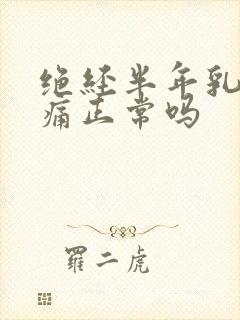 绝経半年乳
痛正常吗
羅二虎